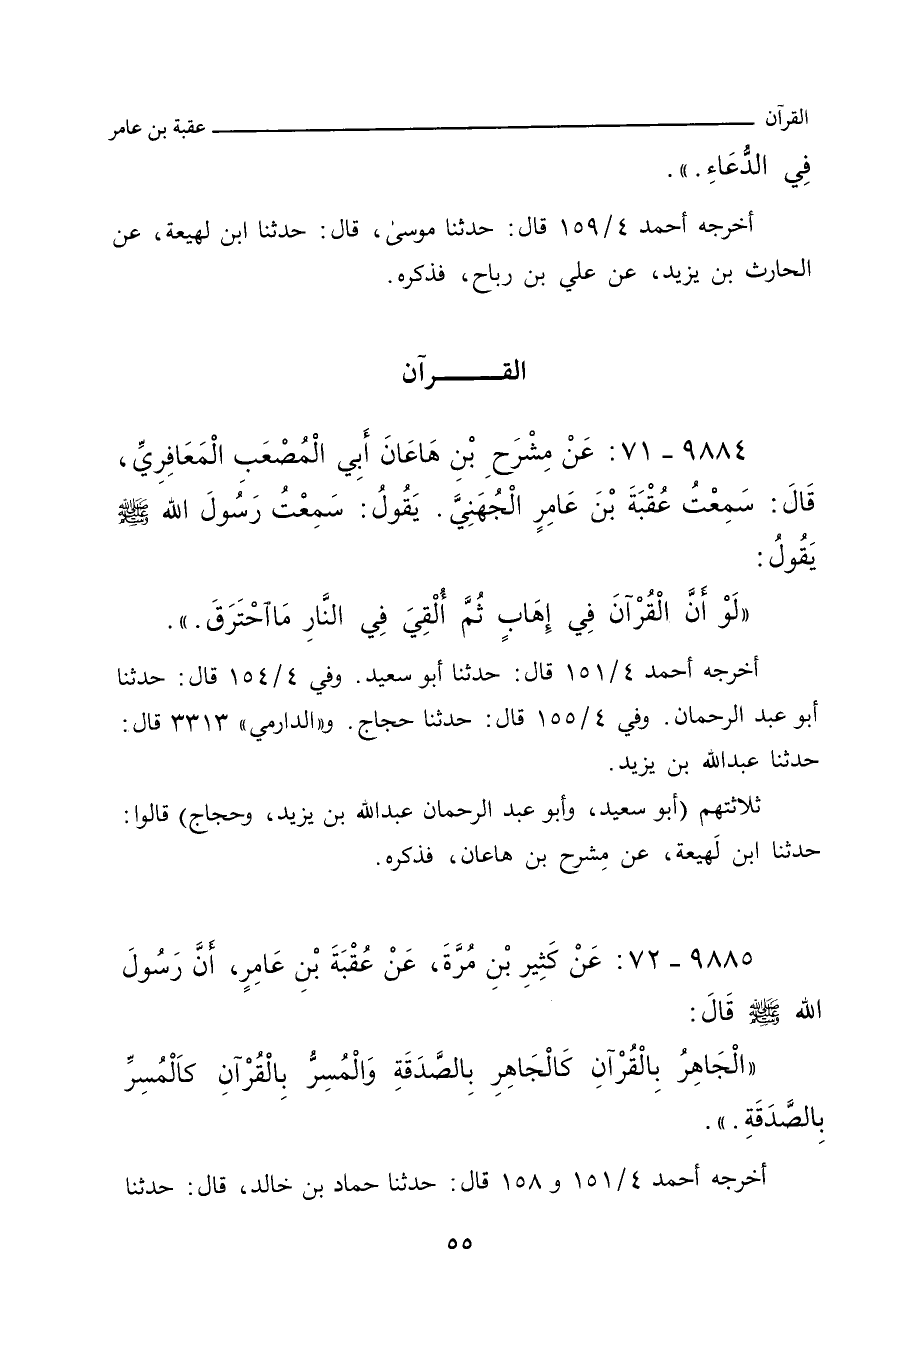 القرآن ــــــــــــــــــــــــــــــــ عقبة بن عامر
فِي الدُّعَاءِ.».
أخرجه أحمد ٤/١٥٩ قال: حدثنا موسىٰ، قال: حدثنا ابن لهيعة، عن
الحارث بن يزيد، عن علي بن رباح، فذكره.
القـــــــرآن
٩٨٨٤ ـ ٧١: عَنْ مِشْرَحِ بْنِ هَاعَانَ أَبِي الْمُصْعَبِ الْمَعَافِرِيِّ،
قَالَ: سَمِعْتُ عُقْبَةَ بْنَ عَامِرٍ الْجُهَنِيَّ. يَقُولُ: سَمِعْتُ رَسُولَ الله ﷺ
يَقُولُ:
«لَوْ أَنَّ الْقُرْآنَ فِي إِهَابٍ ثُمَّ أُلْقِيَ فِي النَّارِ مَاآحْتَرَقَ.».
أخرجه أحمد ٤/١٥١ قال: حدثنا أبو سعيد. وفي ٤/١٥٤ قال: حدثنا
أبو عبد الرحمان. وفي ٤/١٥٥ قال: حدثنا حجاج. و«الدارمي» ٣٣١٣ قال:
حدثنا عبدالله بن يزيد.
ثلاثتهم (أبو سعيد، وأبو عبد الرحمان عبدالله بن يزيد، وحجاج) قالوا:
حدثنا ابن لَهيعة، عن مِشرح بن هاعان، فذكره.
٩٨٨٥ ـ ٧٢: عَنْ كَثِيرِ بْنِ مُرَّةَ، عَنْ عُقْبَةَ بْنِ عَامِرٍ، أَنَّ رَسُولَ
الله ﷺ قَالَ:
«الْجَاهِرُ بِالْقُرْآنِ كَالْجَاهِرِ بِالصَّدَقَةِ وَالْمُسِرُّ بِالْقُرْآنِ كَالْمُسِرِّ
بِالصَّدَقَةِ.».
أخرجه أحمد ٤/١٥١ و ١٥٨ قال: حدثنا حماد بن خالد، قال: حدثنا
٥٥